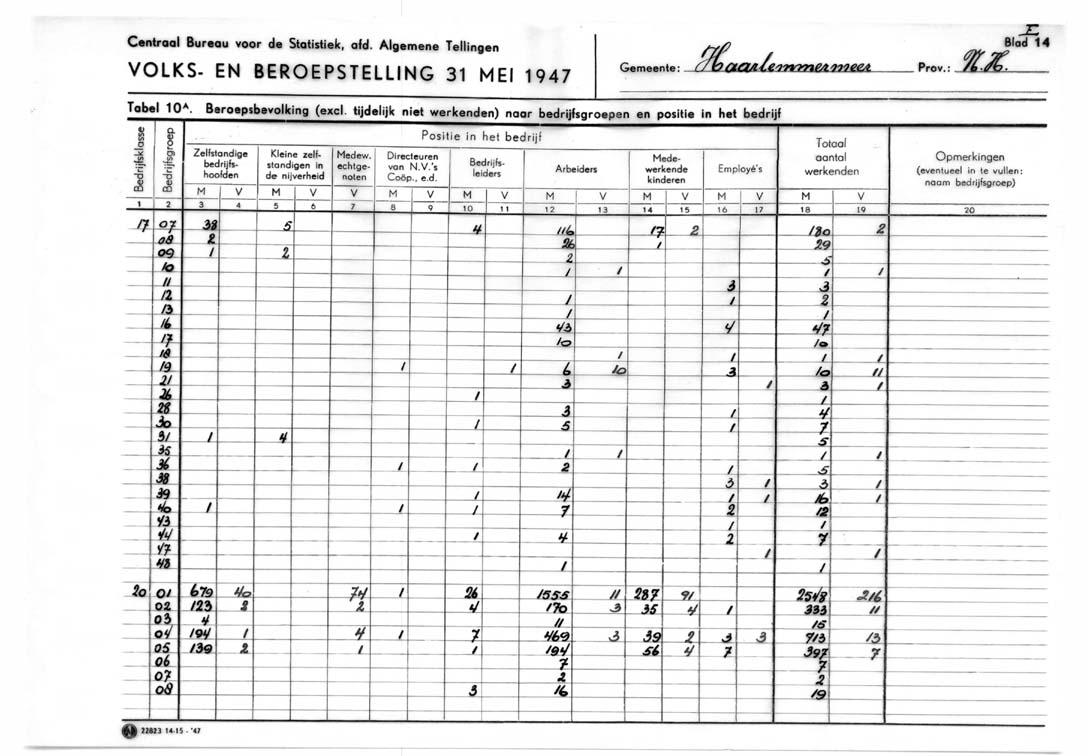 E
Blad 14
Centraal Bureau voor de Statistiek, afd. Algemene Tellingen
VOLKS- EN BEROEPSTELLING 31 MEI 1947
Gemeente: Haarlemmermeer Prov.: N.H.
Tabel 10A. Beroepsbevolking (excl. tijdelijk niet werkenden) naar bedrijfsgroepen en positie in het bedrijf
Bedrijfsklasse Bedrijfsgroep Positie in het bedrijf Totaal aantal werkenden Opmerkingen (eventueel in te vullen: naam bedrijfsgroep)
Zelfstandige bedrijfs-hoofden Kleine zelf-standigen in de nijverheid Medew. echtge-noten Directeuren van N.V.'s Coöp., e.d. Bedrijfs-leiders Arbeiders Mede-werkende kinderen Employé's
M V M V V M V M V M V M V M V M V
1 2 3 4 5 6 7 8 9 10 11 12 13 14 15 16 17 18 19 20
17 07 38 5 4 116 17 2 180 2
08 2 26 1 29
09 1 2 2 5
10 1 1 1 1
11 3 3
12 1 1 2
13 1 1
16 43 4 47
17 10 10
18 1 1 1 1
19 1 1 6 10 3 10 11
21 3 1 3 1
26 1 1
28 3 1 4
30 1 5 1 7
31 1 4 5
35 1 1 1 1
36 1 1 2 1 5
38 3 1 3 1
39 1 14 1 1 16 1
40 1 1 1 7 2 12
43 1 1
44 1 4 2 7
47 1 1
48 1 1
20 01 679 40 74 1 26 1555 11 287 91 2548 216
02 123 2 2 4 170 3 35 4 1 333 11
03 4 11 15
04 194 1 4 1 7 469 3 39 2 3 3 713 13
05 139 2 1 1 194 56 4 7 397 7
06 7 7
07 2 2
08 3 16 19
22823 14-15 - '47